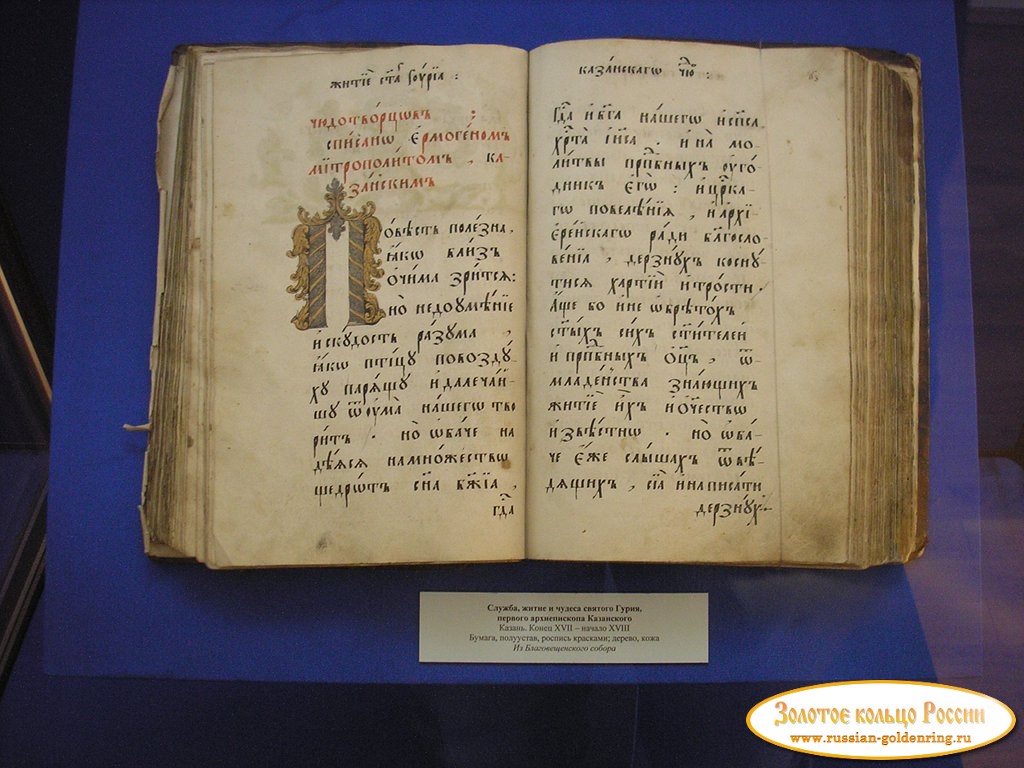 житїѐ ст҃а́г гоу́рїа :
чюдотво́рцовъ :
спи́сано є҆рмоге́номъ
мїтрополи́томъ , ка-
за́нскимъ
По́вѣсть поле́зна ,
ꙗ҆́кѡ вли́зъ
ѻ҆чи́ма зри́тсѧ :
но̀ недоꙋмѣ́нїе
и҆ скꙋ́дость ра́зꙋма ,
ꙗ҆́кѡ пти́цꙋ повоздꙋ́-
хꙋ парѧ́щꙋ и҆ далеча́й-
шꙋ ѿ оу҆ма̀ на́шегѡ тво
ри́тъ . но̀ ѡ҆ба́че на
дѣ́ѧсѧ на мно́жество
щедро́тъ сн҃а бж҃їа ,
гд҇а
каза́нскагѡ чю҃ :
гд҇а и҆ бг҃а на́шегѡ и҆ сп҃са
хрⷭ҇та̀ і҆и҃са . и҆ на мо-
ли́твы прпⷣбныхъ оу҆го́-
дникъ є҆гѡ̀ : и҆ цр҃ка-
гѡ повелѣ́нїѧ , и҆ а҆рхї-
є҆ре́йскагѡ ра́ди бл҃госло-
ве́нїѧ , дерзнꙋ́хъ коснꙋ́
тисѧ ха́ртїи и҆ тро́сти .
А҆́ще бо и҆ не ѡ҆брѣто́хъ
ст҃ы́хъ си́хъ ст҃и́телей
и҆ прпⷣбныхъ ѻ҆ц҃ъ , ѿ-
младе́нства зна́ющихъ
житїѐ и҆́хъ и҆ ѻ҆те́чество
и҆звѣ́стно . но̀ ѡ҆ба́-
че є҆́же слы́шахъ ѿ вѣ́-
дѧщихъ , сїѧ̀ и҆ написа́ти
дерзнꙋ́хъ .
Служба, житие и чудеса святого Гурия,
первого архиепископа Казанского
Казань. Конец XVII – начало XVIII
Бумага, полуустав, роспись красками; дерево, кожа
Из Благовещенского собора
Золотое кольцо России
www.russian-goldenring.ru